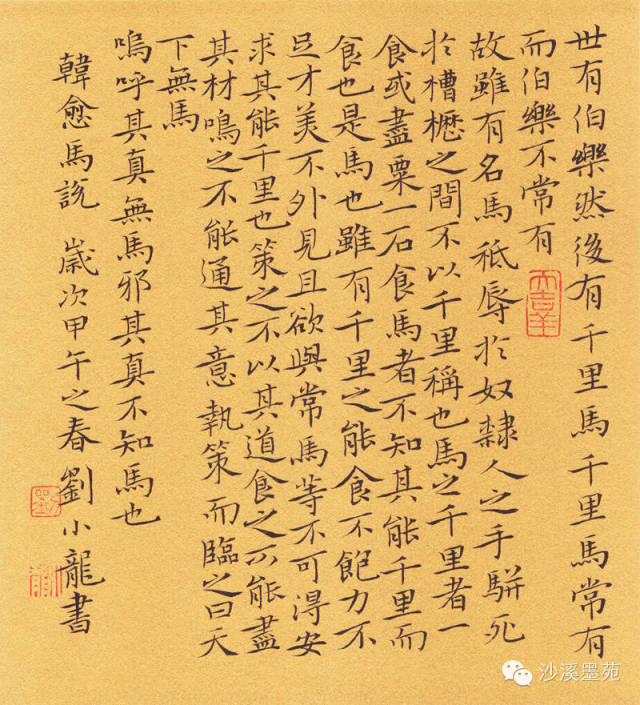 世有伯樂然後有千里馬千里馬常有
而伯樂不常有
大吉羊
故雖有名馬祗辱於奴隸人之手駢死
於槽櫪之間不以千里稱也馬之千里者一
食或盡粟一石食馬者不知其能千里而
食也是馬也雖有千里之能食不飽力不
足才美不外見且欲與常馬等不可得安
求其能千里也策之不以其道食之不能盡
其材鳴之不能通其意執策而臨之曰天
下無馬
嗚呼其真無馬邪其真不知馬也
韓愈馬說 歲次甲午之春劉小龍書
沙溪墨苑